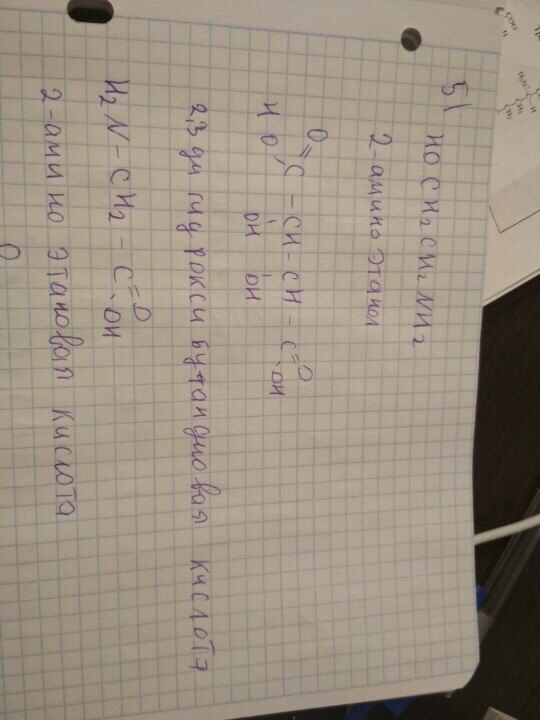 5) HOCH2CH2NH2
2-аминоэтанол
O=C-CH-CH-C=O
HO OH OH OH
2,3 дигидроксибутандиовая кислота
H2N-CH2-C=O
OH
2-аминоэтановая кислота
O